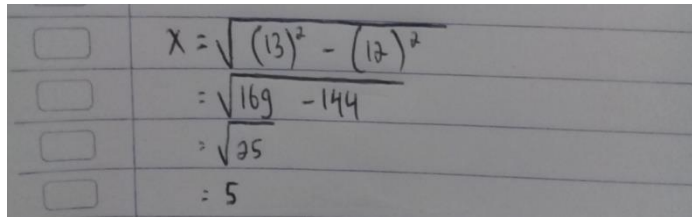 x = √(13)² - (12)²
= √169 - 144
= √25
= 5